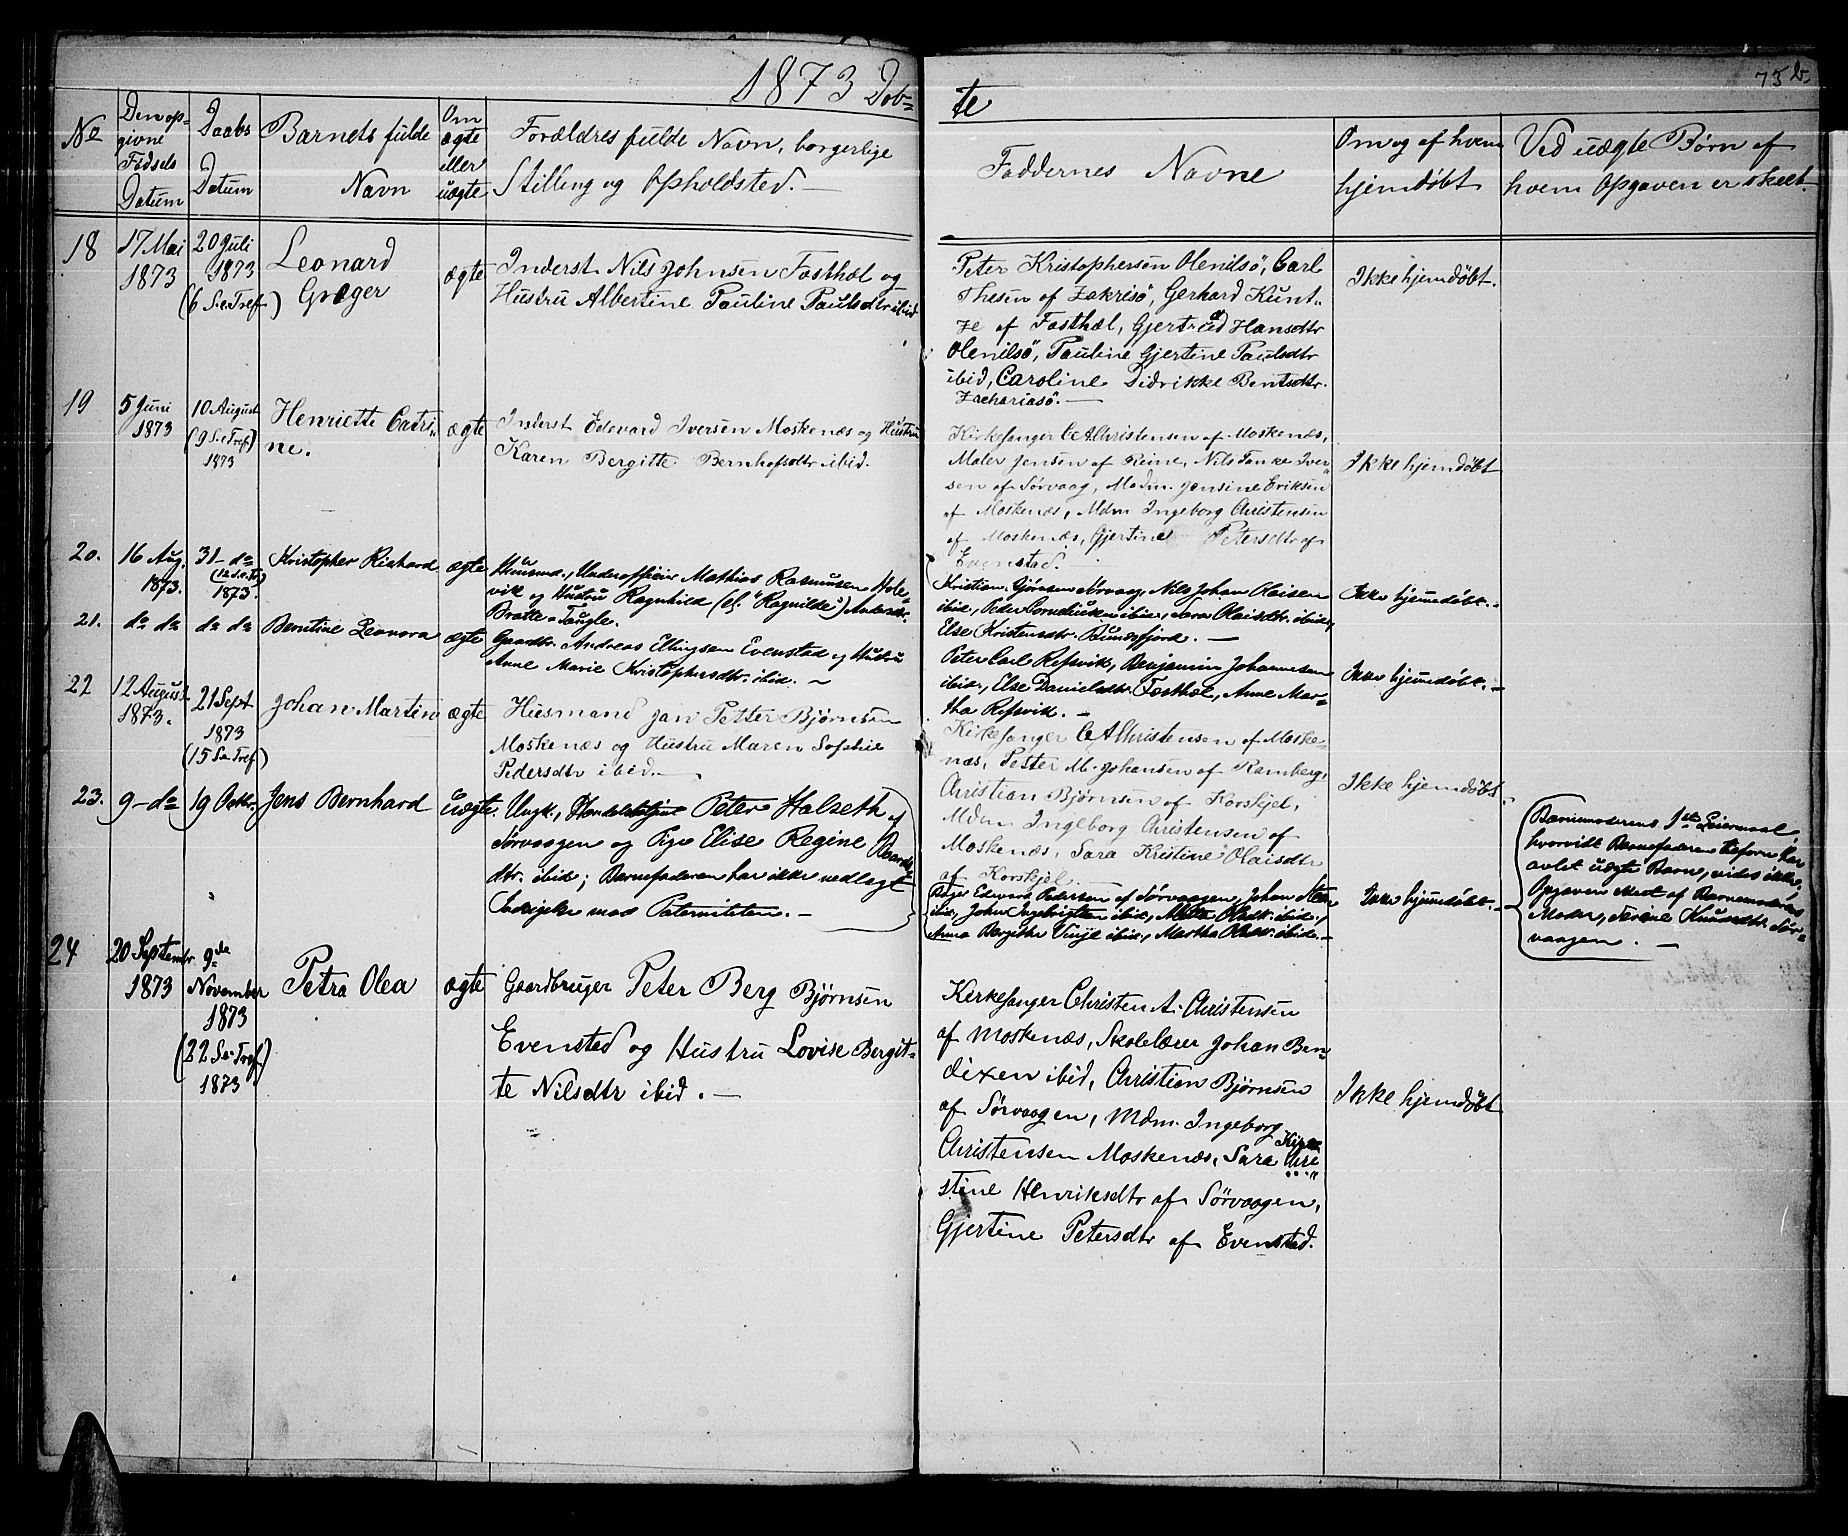 1873 Döb=
te
73 b.
No
Den op=
givne
Fødsels
Datum
Daabs
Datum
Barnets fulde
Navn
Om
ægte
eller
uægte
Forældres fulde Navn, borgerlige
Stilling og Opholdsted. —
Faddernes Navne
Om og af hvem
hjemdöbt
Ved uægte Börn af
hvem Opgaven er skeet.
18
17 Mai
1873
20 Juli
1873
(6 S.e.Tref.)
Leonard
Græger
ægte
Inderst Nils Johnsen Fosthæl og
Hustru Albertine Pauline Paulsdtr ibid
Peter Kristophersen Olenilsö, Carl
Thesen af Zakrisö, Gerhard Kunt=
ze af Fosthæl, Gjertrud Hansdtr
Olenilsö, Pauline Gjertine Paulsdtr
ibid, Caroline Didrikke Bentsdtr.
Zachariasö. —
Ikke hjemdöbt.
19
5 Juni
1873
10 August
(9 S.e.Tref.)
1873
Henriette Catri=
ne.
ægte
Inderst Edevard Iversen Moskenæs og Hustru
Karen Bergitte Bernhofsdtr ibid.
Kirkesanger C A Christensen af Moskenæs,
Maler Jensen af Reine, Nils Tanke Iver=
sen af Sørvaag, Madm. Jensine Eriksen
af Moskenæs, Mdm Ingeborg Christensen
af Moskenæs, Gjertine Petersdtr af
Evenstad.
Ikke hjemdöbt
20.
16 Aug.
1873.
31— do
(12 S.e.Tr.)
1873.
Kristopher Richard
ægte
Huusmd., Underofficier Mathias Rasmussen Hole=
vik og Hustru Ragnhild (el. "Ragnilde") Andersdr.
Bratte-Tangle.
Kristian Bjørnsen Sörvaag, Nils Johan Olaisen
ibid., Peder Corneliusen ibid., Sara Olaisdtr. ibid.,
Else Kristensdtr. Bundesfjord. —
Ikke hjemmedöbt. —
21.
do do
do do
Berntine Leonora
ægte
Gaardbr. Andreas Ellingsen Evenstad og Hustru
Anne Marie Kristophersdtr. ibid. —
Peter Carl Refsvik, Benjamin Johannesen
ibid., Else Danielsdtr. Fosthæl, Anne Mar=
tha Refsvik. —
Ikke hjemmedöbt. —
22
12 August
1873.
21 Sept
1873
(15 S.e.Tref)
Johan Martin
ægte
Husmand Jan Petter Bjørnsen
Moskenæs og Hustru Maren Sophie
Pedersdtr ibid. —
Kirkesanger C A Christensen af Moske=
næs, Petter M. Johansen af Ramberg,
Christian Bjørnsen af Korshjel,
Mdm Ingeborg Christensen af
Moskenæs, Sara Kristine Olaisdtr
af Korshjel. —
Ikke hjemdöbt.
23.
9— do
19 Octbr.
Jens Bernhard
uægte.
Ungk., Handelsbetjent Peter Halseth af
Sörvaagen og Pige Elise Regine Baards=
dtr. ibid; Barnefaderen har ikke nedlagt
Indsigelse mod Paterniteten. —
Pige Edvarda Pedersen af Sörvaagen, Johan Steen
ibid, John Ingebrigtsen ibid., Mette Olsdtr. ibid.,
Anna Bergithe Vinje ibid., Martha Olsdr. ibid. —
Ikke hjemmedöbt. —
Barnemoderens 1ste Leiermaal,
hvorvidt Barnefaderen tilforn har
avlet uægte Barn, vides ikke.
Opgaven skeet af Barnemoderens
Moder, Serene Knudsdtr. Sör=
vaagen. —
24
20 Septembr
1873
9de
November
1873
(22 S.e.Tref)
1873
Petra Olea
ægte
Gaardbruger Peter Berg Bjørnsen
Evensted og Hustru Lovise Bergit=
te Nilsdtr ibid. —
Kirkesanger Christen A. Christensen
af Moskenæs, Skolelærer Johan Ben=
dixen ibid, Christian Bjørnsen
af Sørvaagen, Mdm. Ingeborg
Christensen Moskenæs, Sara Chri
stine Henriksdtr af Sørvaagen,
Gjertine Petersdtr af Evensted.
Ikke hjemdöbt